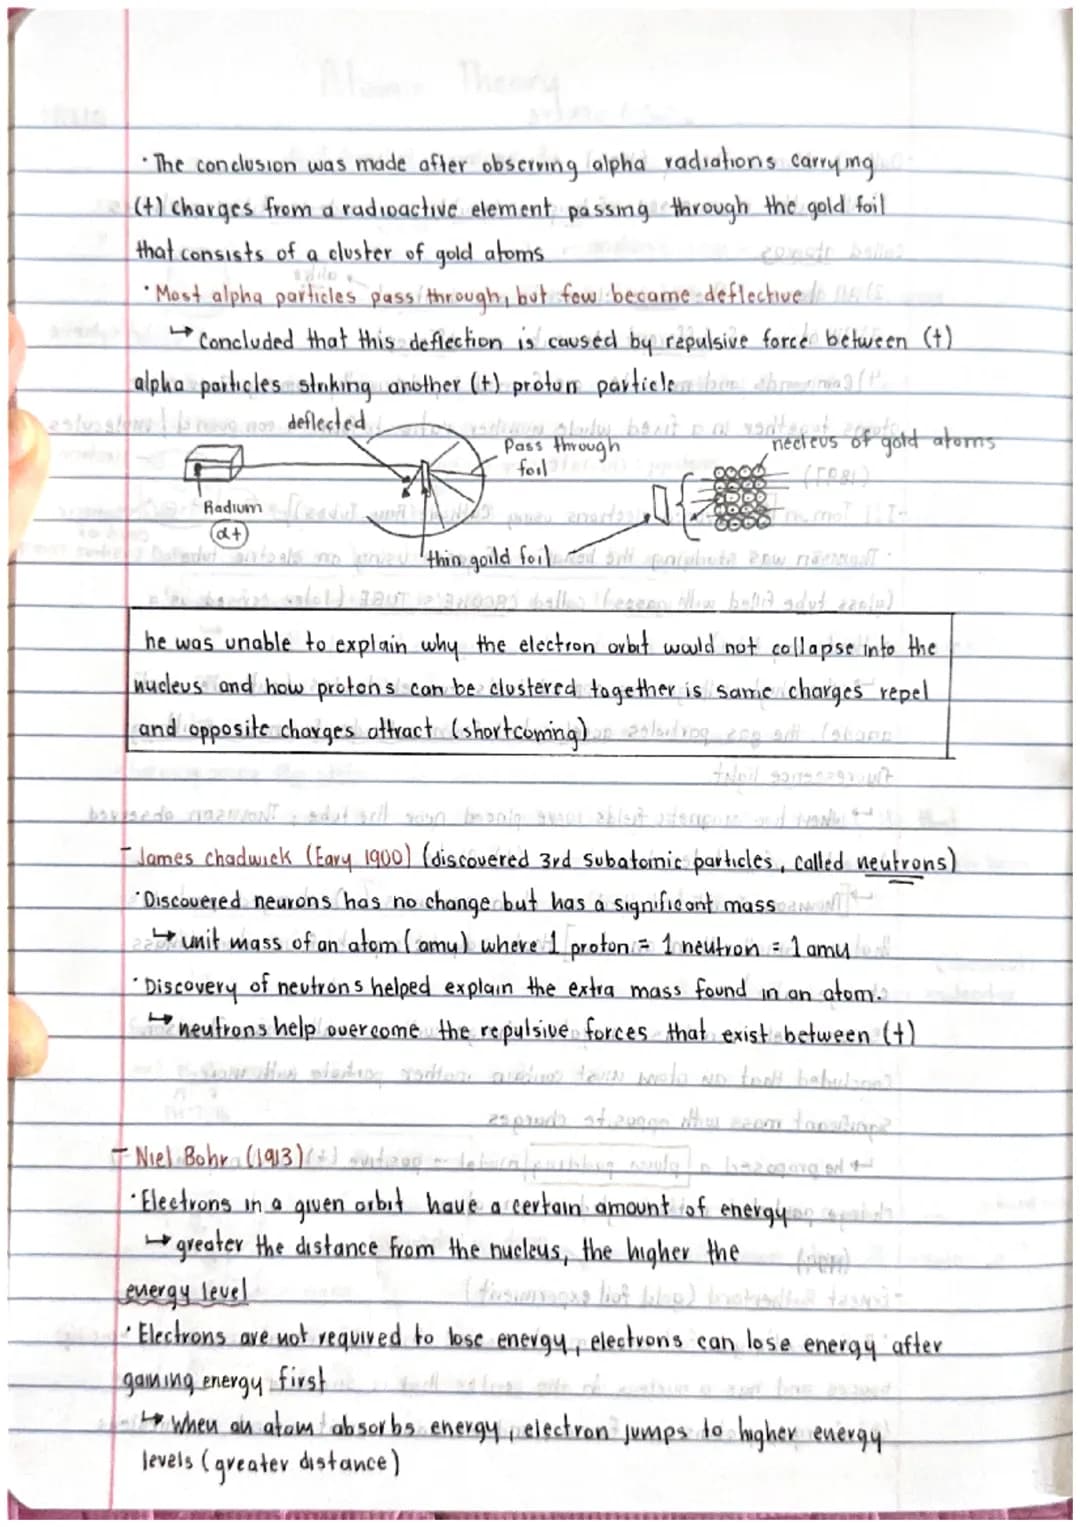 · The conclusion was made after observing alpha radiations carrying
(+) charges from a radioactive element passing through the gold foil
that consists of a cluster of gold atoms
· Most alpha particles pass through, but few became deflective
↳ Concluded that this deflection is caused by repulsive force between (+)
alpha particles striking another (+) proton particle
deflected
Pass through
foil
necleus of gold atoms
Radium
α+
thin goild foil
he was unable to explain why the electron orbit would not collapse into the
nucleus and how protons can be clustered together is same charges repel
and opposite charges attract (shortcoming)
- James chadwick (Eary 1900) (discovered 3rd subatomic particles, called neutrons)
· Discovered neurons has no change but has a significant mass
↳ unit mass of an atom (amu) where 1 proton = 1 neutron = 1 amu
· Discovery of neutrons helped explain the extra mass found in an atom.
↳ neutrons help overcome the repulsive forces that exist between (+)
- Niel Bohr (1913)
· Electrons in a given orbit have a certain amount of energy
↳ greater the distance from the nucleus, the higher the
energy level
· Electrons are not required to lose energy, electrons can lose energy after
gaining energy first
↳ When an atom absorbs energy, electron jumps to higher energy
levels (greater distance)